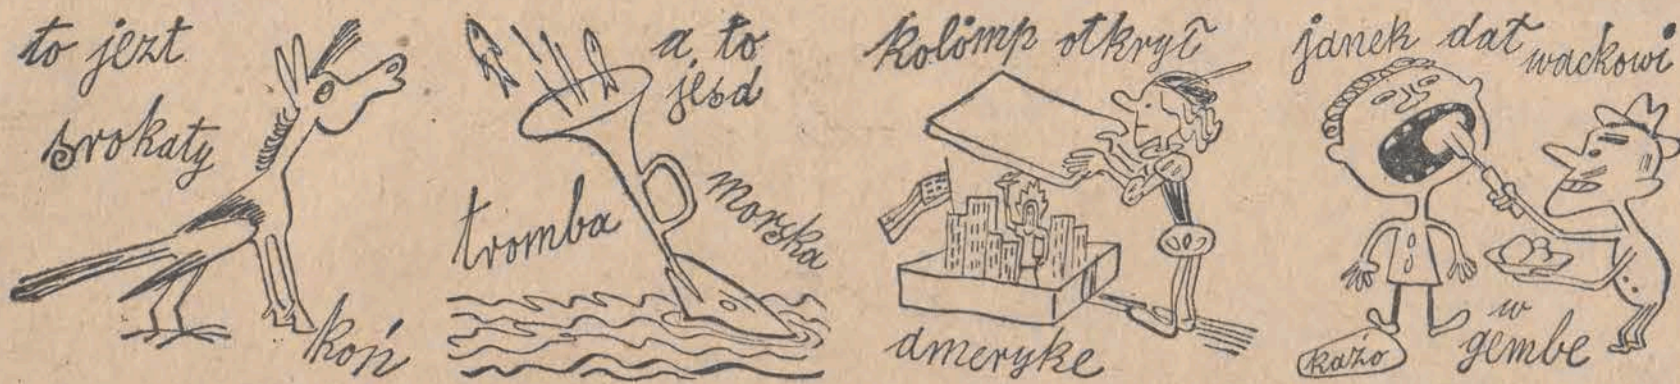 to jezt
srokaty
koń
a to
jesd
tromba
morska
kolomp otkrył
amerykę
janek dał wackowi
w
gembe
kaźo